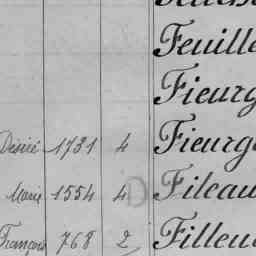 Feuille
Fieurg
Désiré 1731 4 Fieurg
Marie 1554 4 D Fileau
François 768 2 Filleu